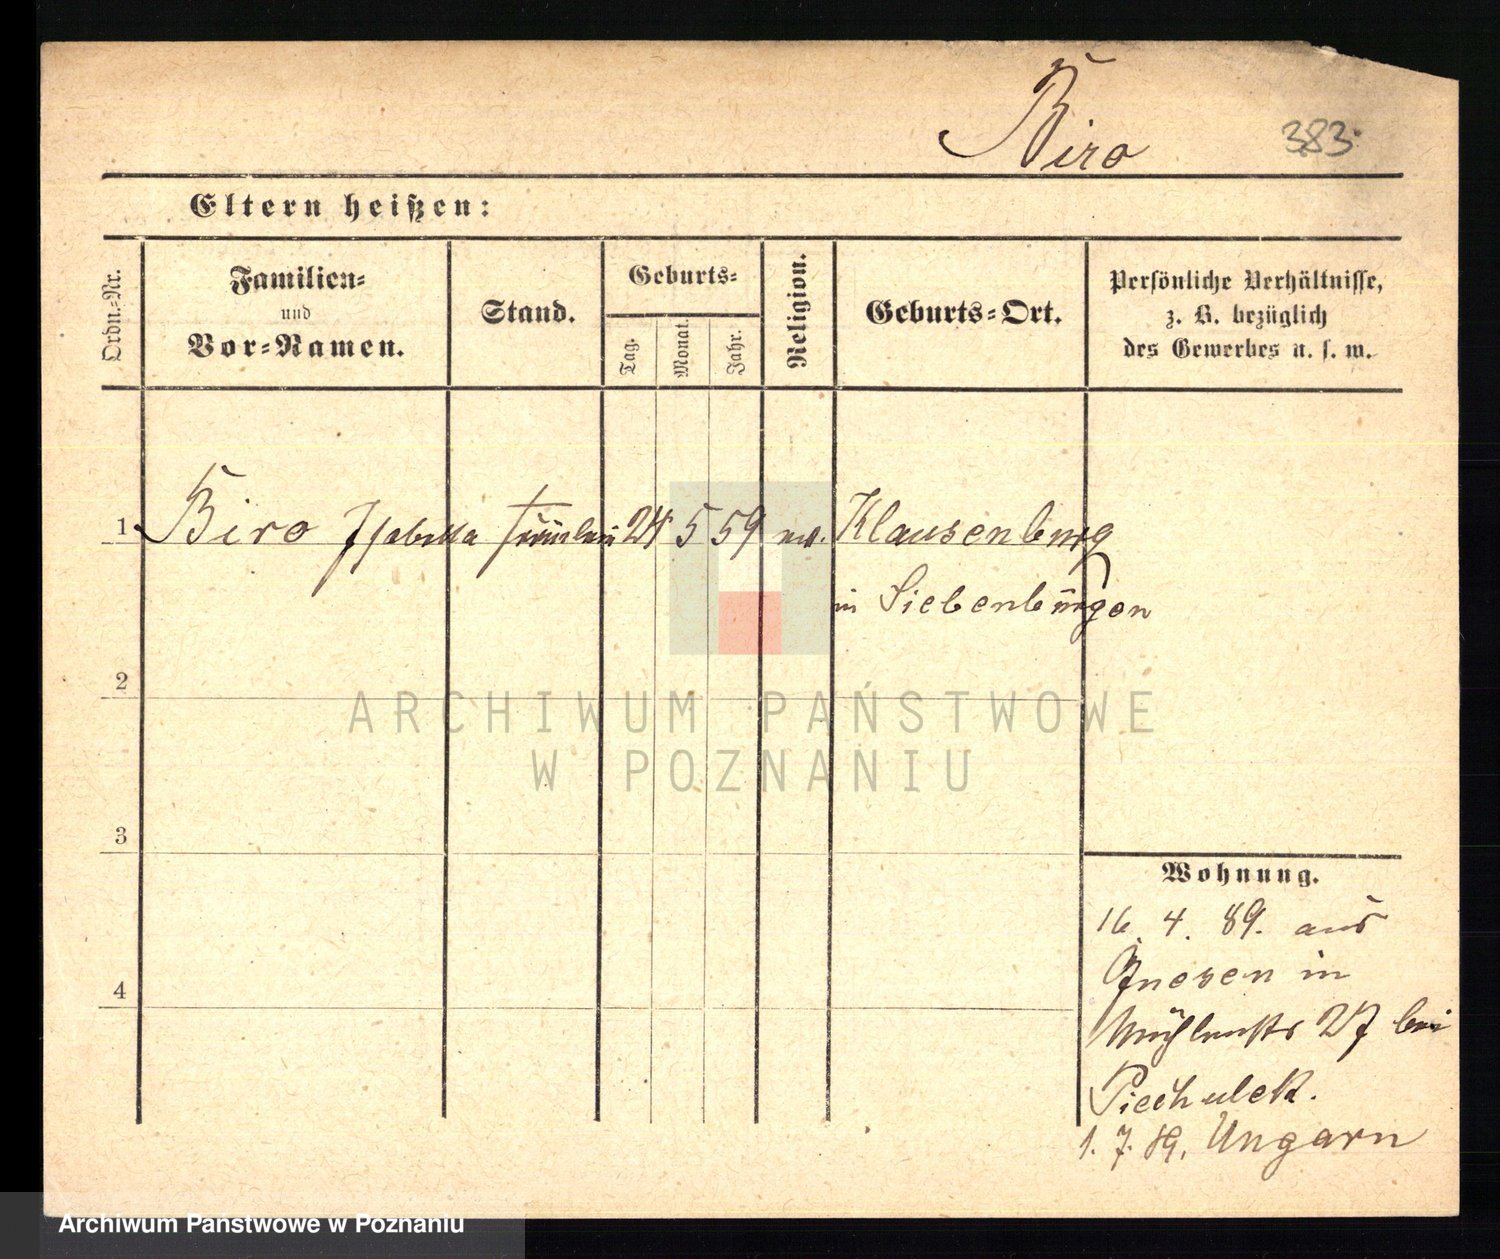 Biro 383.
Eltern heißen:
Ordn.-Nr.
Familien-
und
Vor-Namen.
Stand.
Geburts-
Tag.
Monat.
Jahr.
Religion.
Geburts-Ort.
Persönliche Verhältnisse,
z. B. bezüglich
des Gewerbes u. s. w.
1 Biro Isabella Fräulein 24 5 59 Klausenburg
in Siebenbürgen
2
3
4
Wohnung.
16. 4. 89. aus
Gnesen in
Mühlenstr 27 bei
Piechulek.
1. 7. 89. Ungarn
ARCHIWUM PAŃSTWOWE
W POZNANIU
Archiwum Państwowe w Poznaniu